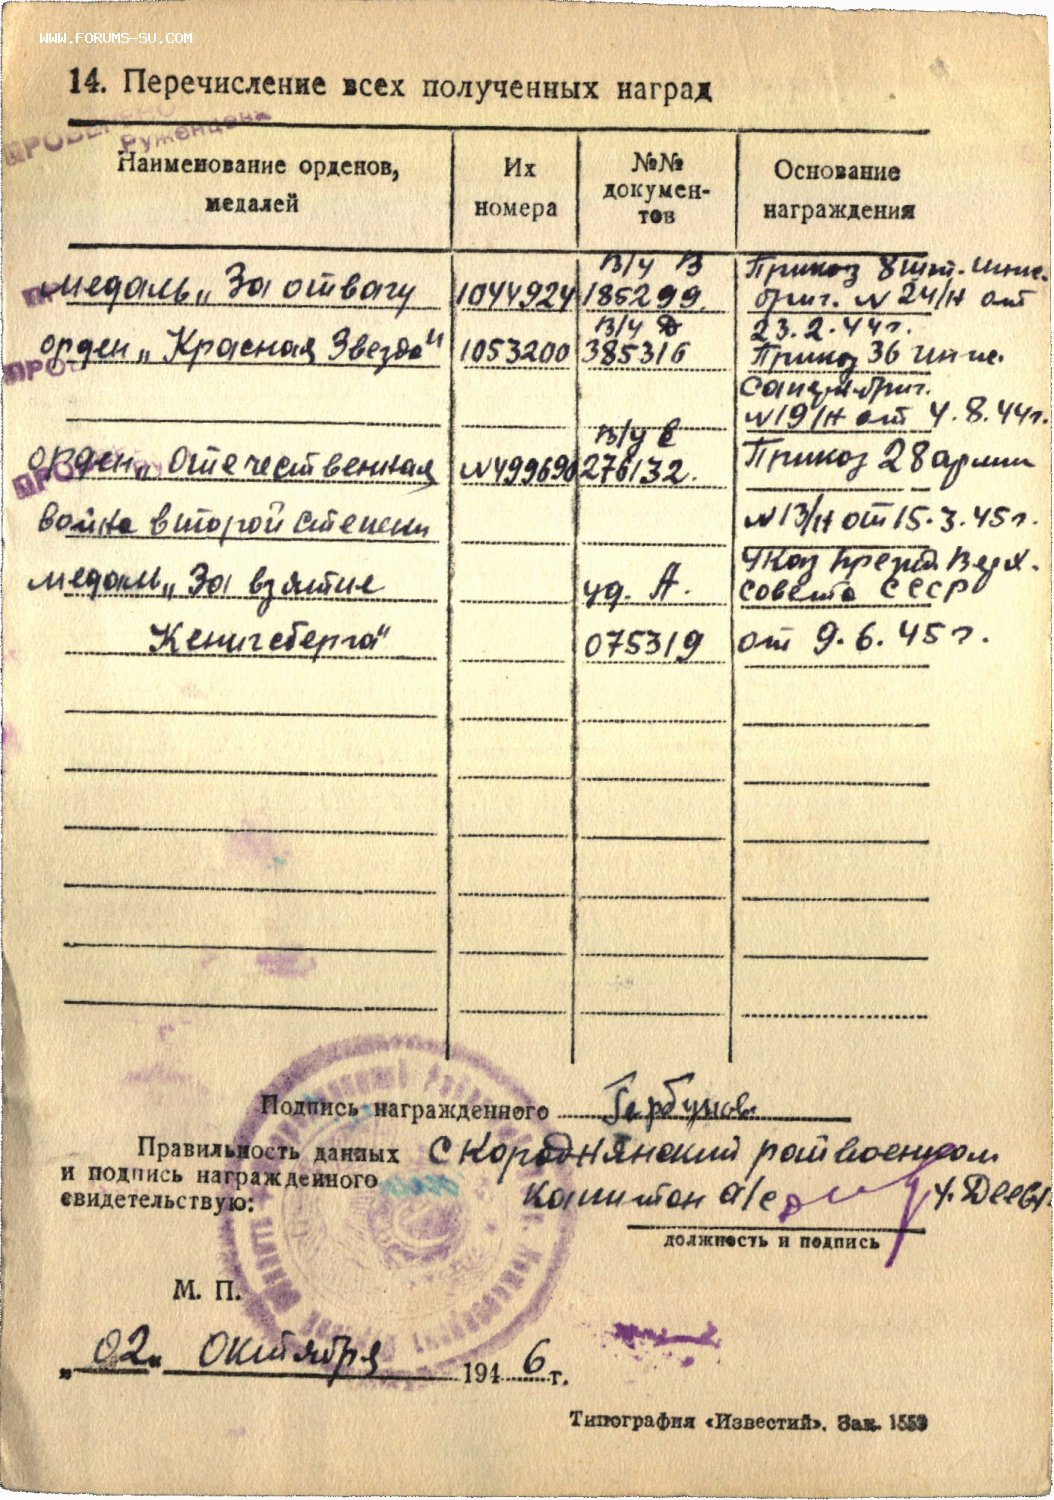 WWW.FORUMS-SU.COM
14. Перечисление всех полученных наград
Наименование орденов, медалей
Их номера
№№ документов
Основание награждения
медаль „За отвагу
1044924
В/ч В
185299.
Приказ 8 шт. инж.
бриг. №24/н от
23.2.44г.
орден „Красная Звезда"
1053200
385316
Приказ 36 инже.
Сапер. бриг.
№19/н от 4.8.44г.
орден „Отечественная
война второй степени
№499690
276132.
Приказ 28 армии
№13/н от 15.3.45г.
медаль „За взятие
Кенигсберга"
уд. А.
075319
Указ През. Верх.
Совета СССР
от 9.6.45г.
Подпись награжденного
Правильность данных
и подпись награжденного
свидетельствую:
Скороднянский райвоенком
Капитан а/с
должность и подпись
М. П.
„02" Октября 1946 г.
Типография «Известий». Зак. 1553